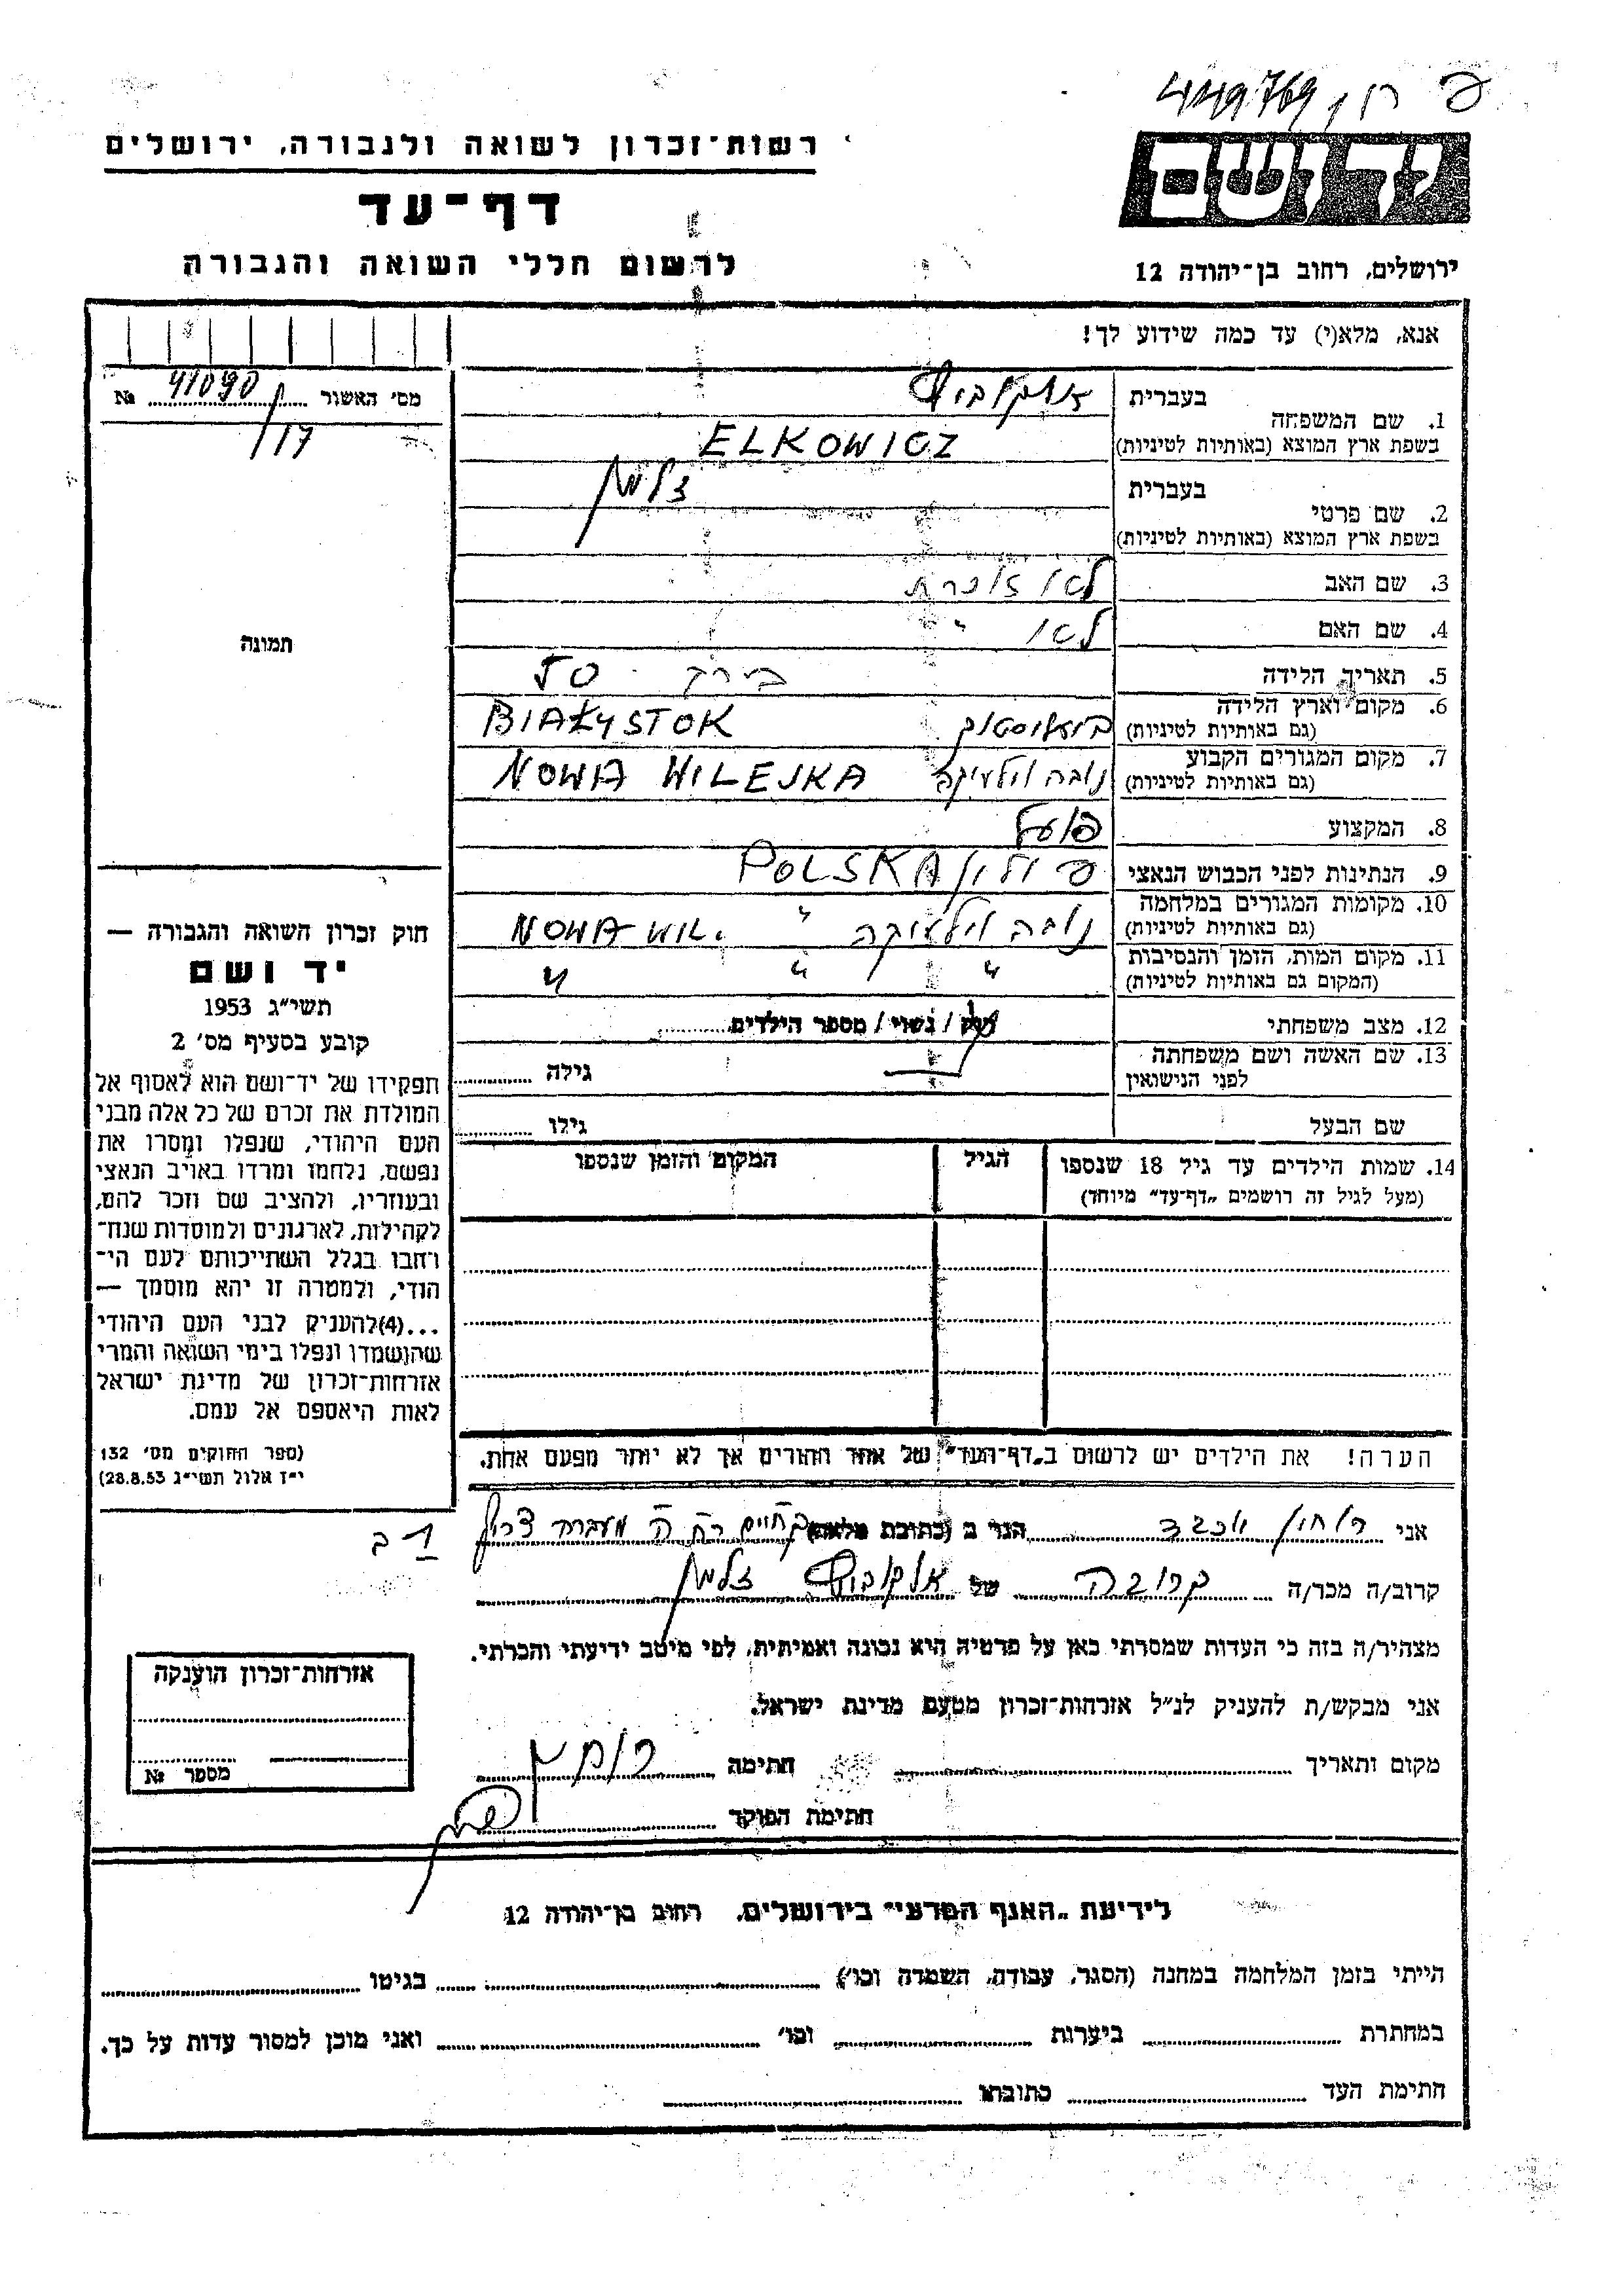 449769
רשות־זכרון לשואה ולגבורה, ירושלים
יד ושם
דף־עד
לרשום חללי השואה והגבורה
ירושלים, רחוב בן־יהודה 12
אנא, מלא(י) עד כמה שידוע לך!
מס׳ האשור 41090 №
17
תמונה
1. שם המשפחה
בעברית אלקוביץ
בשפת ארץ המוצא (באותיות לטיניות) ELKOWICZ
2. שם פרטי
בעברית זלמן
בשפת ארץ המוצא (באותיות לטיניות)
3. שם האב לא זוכרת
4. שם האם לא "
5. תאריך הלידה בערך 50
6. מקום וארץ הלידה ביאליסטוק BIAŁYSTOK
(גם באותיות לטיניות)
7. מקום המגורים הקבוע נובה וילייקה NOWA WILEJKA
(גם באותיות לטיניות)
8. המקצוע פועל
9. הנתינות לפני הכבוש הנאצי פולין POLSKA
10. מקומות המגורים במלחמה נובה וילייקה " NOWA WIL.
(גם באותיות לטיניות)
11. מקום המות, הזמן והנסיבות " " "
(המקום גם באותיות לטיניות)
12. מצב משפחתי רוק / נשוי / מספר הילדים
13. שם האשה ושם משפחתה גילה
לפני הנישואין
שם הבעל גילו
14. שמות הילדים עד גיל 18 שנספו הגיל המקום והזמן שנספו
(מעל לגיל זה רושמים „דף־עד״ מיוחד)
חוק זכרון השואה והגבורה —
יד ושם
תשי״ג 1953
קובע בסעיף מס׳ 2
תפקידו של יד־ושם הוא לאסוף אל
המולדת את זכרם של כל אלה מבני
העם היהודי, שנפלו ומסרו את
נפשם, נלחמו ומרדו באויב הנאצי
ובעוזריו, ולהציב שם וזכר להם,
לקהילות, לארגונים ולמוסדות שנח־
רחבו בגלל השתייכותם לעם הי־
הודי, ולמטרה זו יהא מוסמך —
...(4)להעניק לבני העם היהודי
שהושמדו ונפלו בימי השואה והמרי
אזרחות־זכרון של מדינת ישראל
לאות היאספם אל עמם.
(ספר החוקים מס׳ 132
י״ז אלול תשי״ג 28.8.53)
הערה! את הילדים יש לרשום ב„דף־העד״ של אחד ההורים אך לא יותר מפעם אחת.
אני יוכבד הגר ב (כתובת מלאה)
קרוב/ה מכר/ה קרובה של אלקוביץ זלמן
מצהיר/ה בזה כי העדות שמסרתי כאן על פרטיה היא נכונה ואמיתית, לפי מיטב ידיעתי והכרתי.
אני מבקש/ת להעניק לנ״ל אזרחות־זכרון מטעם מדינת ישראל.
מקום ותאריך חתימה
חתימת הפוקד
אזרחות־זכרון הוענקה
מספר №
לידיעת „האגף המדעי״ בירושלים, רחוב בן־יהודה 12
הייתי בזמן המלחמה במחנה (הסגר, עבודה, השמדה וכו׳) בגיטו
במחתרת ביערות וכו׳ ואני מוכן למסור עדות על כך.
חתימת העד כתובתו